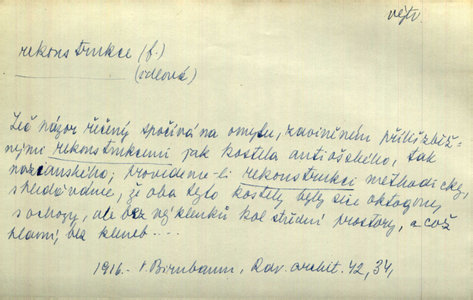 výtv.
rekonstrukce (f.)
(ideová)
Leč názor řečený spočívá na omylu, zaviněném příliš zběž-
nými rekonstrukcemi jak kostela antiošského, tak
nazianského; provedeme-li rekonstrukci methodicky,
shledáváme, že oba tyto kostely byly sice oktogony
s ochozy, ale bez výklenků kol střední prostory, a což
hlavní, bez kleneb....
1916. V. Birnbaum, Rav. archit. 42, 34,